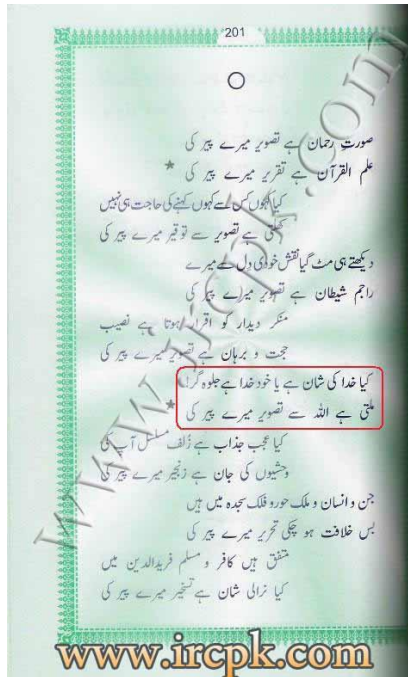 201
صورتِ رحمان ہے تصویر میرے پیر کی
علم القرآن ہے تقریر میرے پیر کی *
کیا کہوں کس سے کہوں کہنے کی حاجت ہی نہیں
ہے تصویر سے توقیر میرے پیر کی
دیکھتے ہی مٹ گیا نقش خودی دل سے میرے
راجم شیطان ہے تصویر میرے پیر کی
منکر دیدار کو اقرار ہوتا ہے نصیب
حجت و برہان ہے تصویر میرے پیر کی
کیا خدا کی شان ہے یا خود خدا ہے جلوہ گر!
ملتی ہے اللہ سے تصویر میرے پیر کی *
کیا عجب جذاب ہے زلف مسلسل آپ کی
وحشیوں کی جان ہے زنجیر میرے پیر کی
جن و انسان و ملک حور و فلک سجدہ میں ہیں
بس خلافت ہو چکی تحریر میرے پیر کی
متفق ہیں کافر و مسلم فرید الدین میں
کیا نرالی شان ہے تسخیر میرے پیر کی
www.ircpk.com
www.ircpk.com